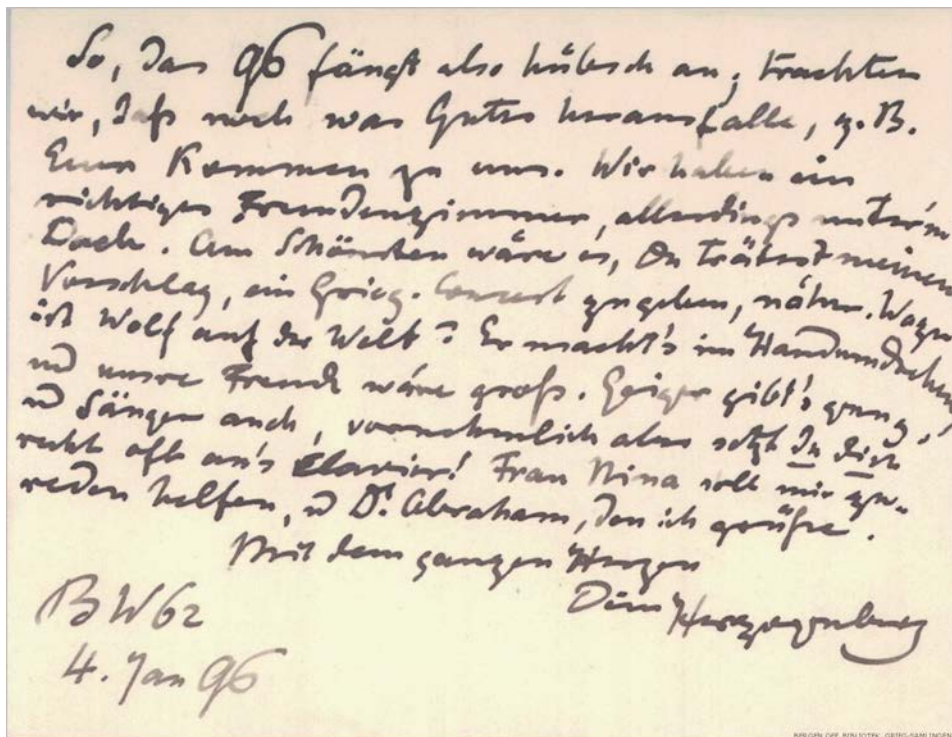 So, das 96 fängt also hübsch an; trachten
wir, daß noch was Gutes herausfalle, z. B.
Euer Kommen zu uns. Wir haben ein
richtiges Fremdenzimmer, allerdings unter'm
Dach. Am Schönsten wäre es, Du trätest meinem
Vorschlag, ein Grieg-Concert zu geben, näher. Wozu
ist Wolf auf der Welt? Er macht's im Handumdrehen
und unsre Freude wäre groß. Geiger gibt's genug,
u Sänger auch, vornehmlich aber setzt Du Dich
recht oft an's Clavier! Frau Nina soll mir zu-
reden helfen, u Dr. Abraham, den ich grüße.
Mit dem ganzen Herzen
Dein Herzogenberg
B W 62
4. Jan 96
BERGEN OFF. BIBLIOTEK. GRIEG-SAMLINGEN